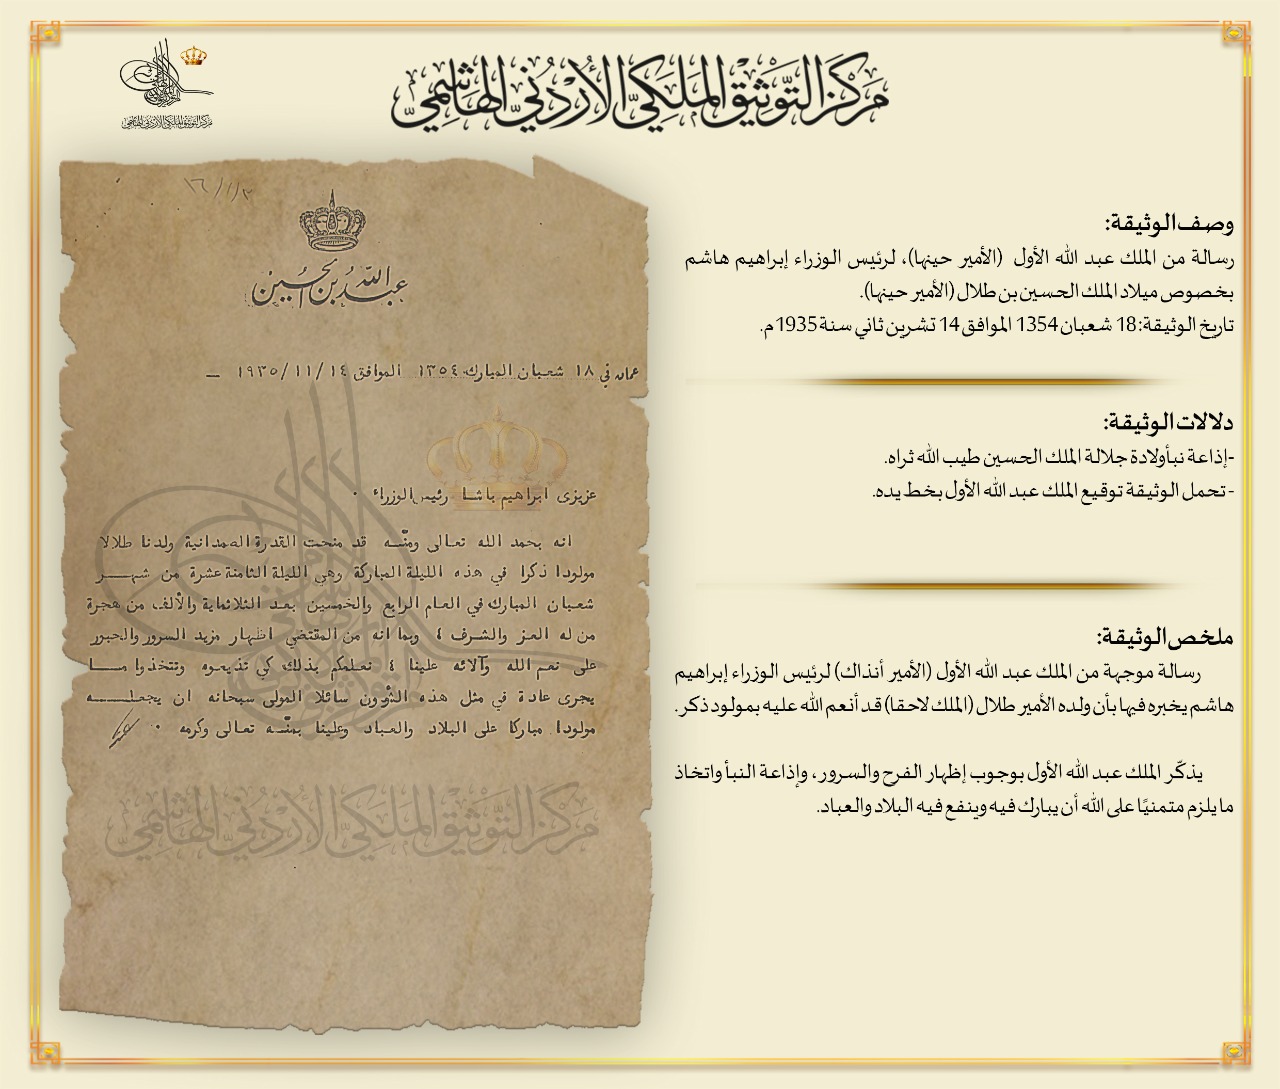 مركز التوثيق الملكي الأردني الهاشمي
مركز التوثيق الملكي الأردني الهاشمي
وصف الوثيقة:
رسالة من الملك عبد الله الأول (الأمير حينها)، لرئيس الوزراء إبراهيم هاشم
بخصوص ميلاد الملك الحسين بن طلال (الأمير حينها).
تاريخ الوثيقة: 18 شعبان 1354 الموافق 14 تشرين ثاني سنة 1935م.
دلالات الوثيقة:
-إذاعة نبأ ولادة جلالة الملك الحسين طيب الله ثراه.
- تحمل الوثيقة توقيع الملك عبد الله الأول بخط يده.
ملخص الوثيقة:
رسالة موجهة من الملك عبد الله الأول (الأمير أنذاك) لرئيس الوزراء إبراهيم
هاشم يخبره فيها بأن ولده الأمير طلال (الملك لاحقا) قد أنعم الله عليه بمولود ذكر.
يذكّر الملك عبد الله الأول بوجوب إظهار الفرح والسرور، وإذاعة النبأ واتخاذ
ما يلزم متمنيًا على الله أن يبارك فيه وينفع فيه البلاد والعباد.
عبد الله بن الحسين
عمان في ١٨ شعبان المبارك ١٣٥٤ الموافق ١٤ /١١ /١٩٣٥ ـ
عزيزى ابراهيم باشا رئيس الوزراء ٠
انه بحمد الله تعالى ومنّه قد منحت القدرة الصمدانية ولدنا طلالا
مولودا ذكرا في هذه الليلة المباركة وهي الليلة الثامنة عشرة من شهـر
شعبان المبارك في العام الرابع والخمسين بعد الثلاثماية والألف من هجرة
من له العز والشرف ٤ وبما انه من المقتضي اظهار مزيد السرور والحبور
على نعم الله وآلائه علينا ٤ نعلمكم بذلك كي تذيعوه وتتخذوا مـا
يجرى عادة في مثل هذه الشؤون سائلا المولى سبحانه ان يجعلـه
مولودا مباركا على البلاد والعباد وعلينا بمنّه تعالى وكرمه ٠
مركز التوثيق الملكي الأردني الهاشمي